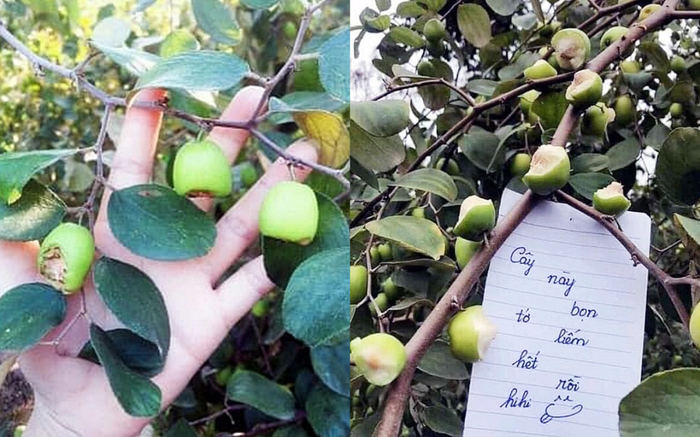 Cây này
tớ bọn
liếm
hết rồi
hihi